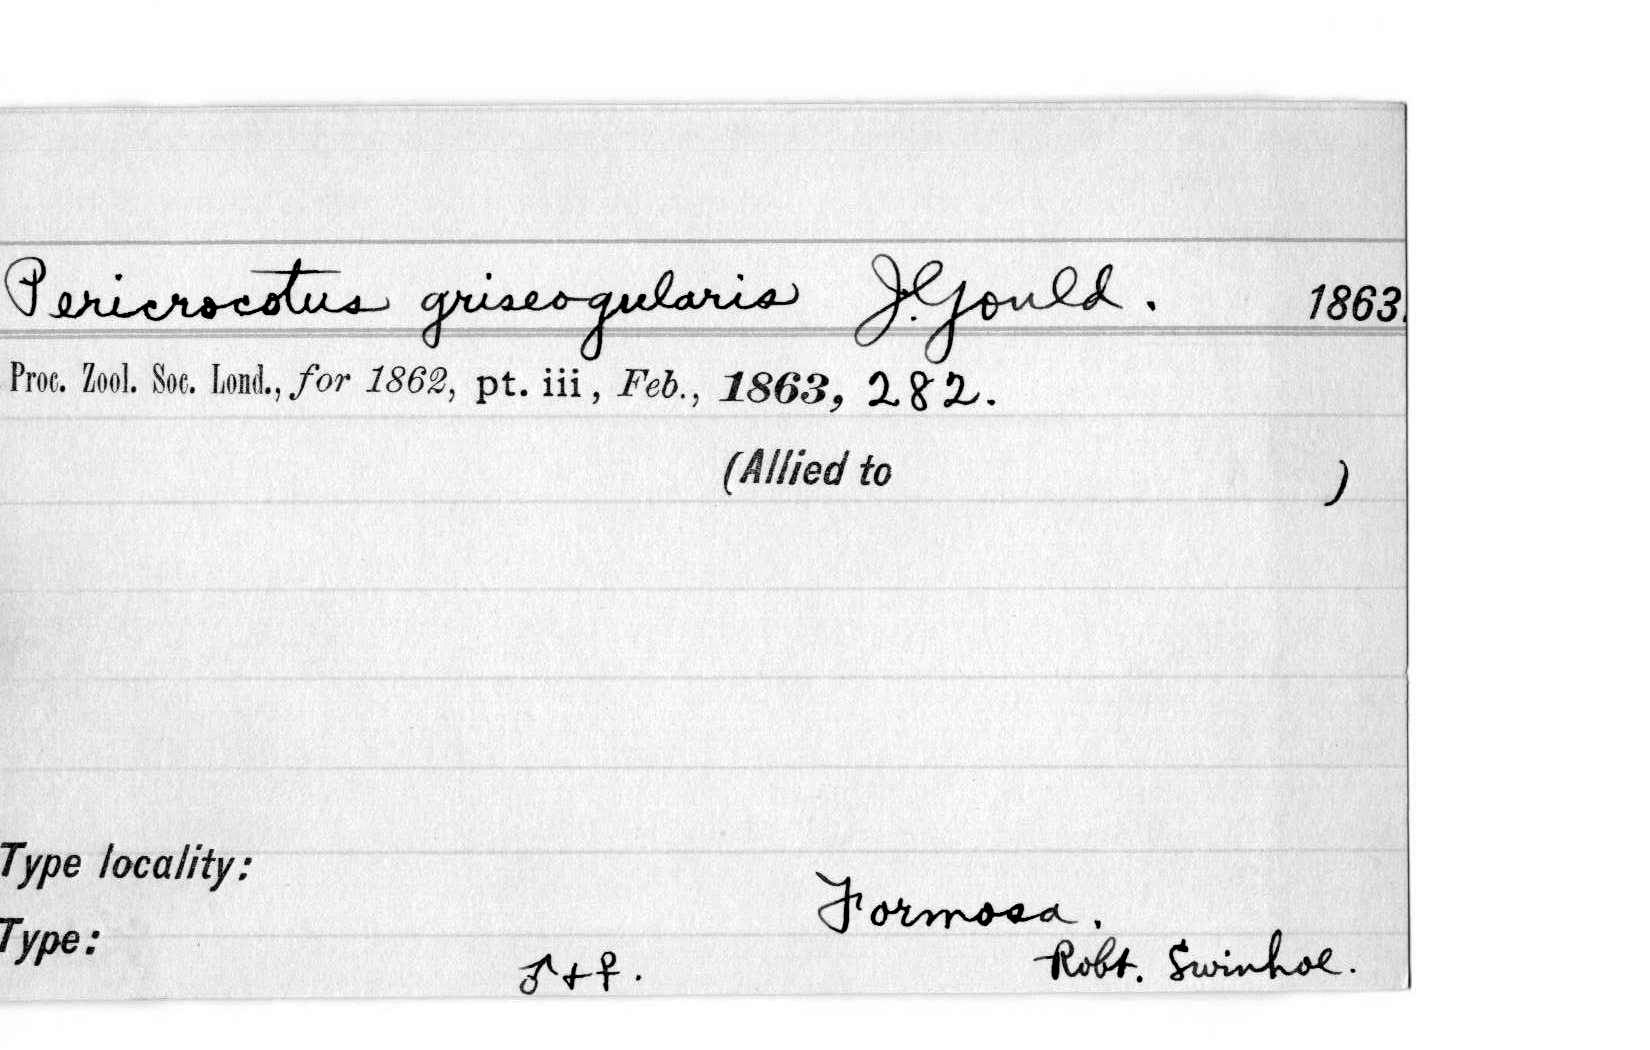 Pericrocotus griseogularis J. Gould. 1863.
Proc. Zool. Soc. Lond., for 1862, pt. iii, Feb., 1863, 282.
(Allied to )
Type locality:
Formosa.
Type:
♂ + ♀. Robt. Swinhoe.